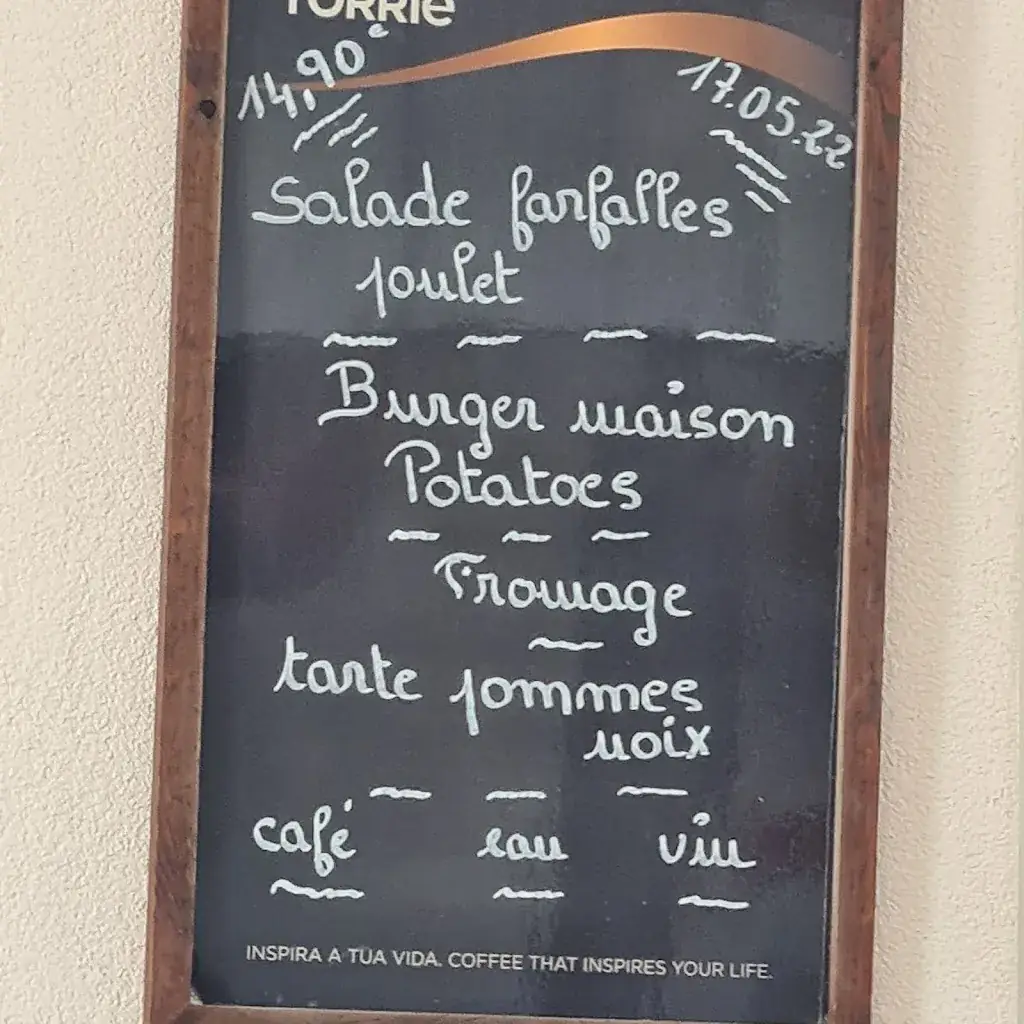 TORRIE
14,90€
17.05.22
Salade farfalles
poulet
Burger maison
Potatoes
Fromage
tarte pommes
noix
café eau vin
INSPIRA A TUA VIDA. COFFEE THAT INSPIRES YOUR LIFE.